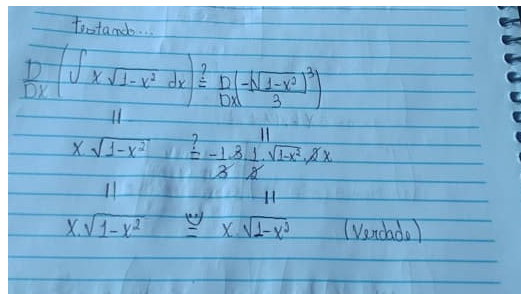 testando...
D/Dx (∫ x √1-x² dx) ≟ D/Dx (-(√1-x²)³/3)
|| ||
x.√1-x² ≟ -1/3.3.1/2.√1-x².2x
|| ||
x.√1-x² = x.√1-x³ (Verdade)